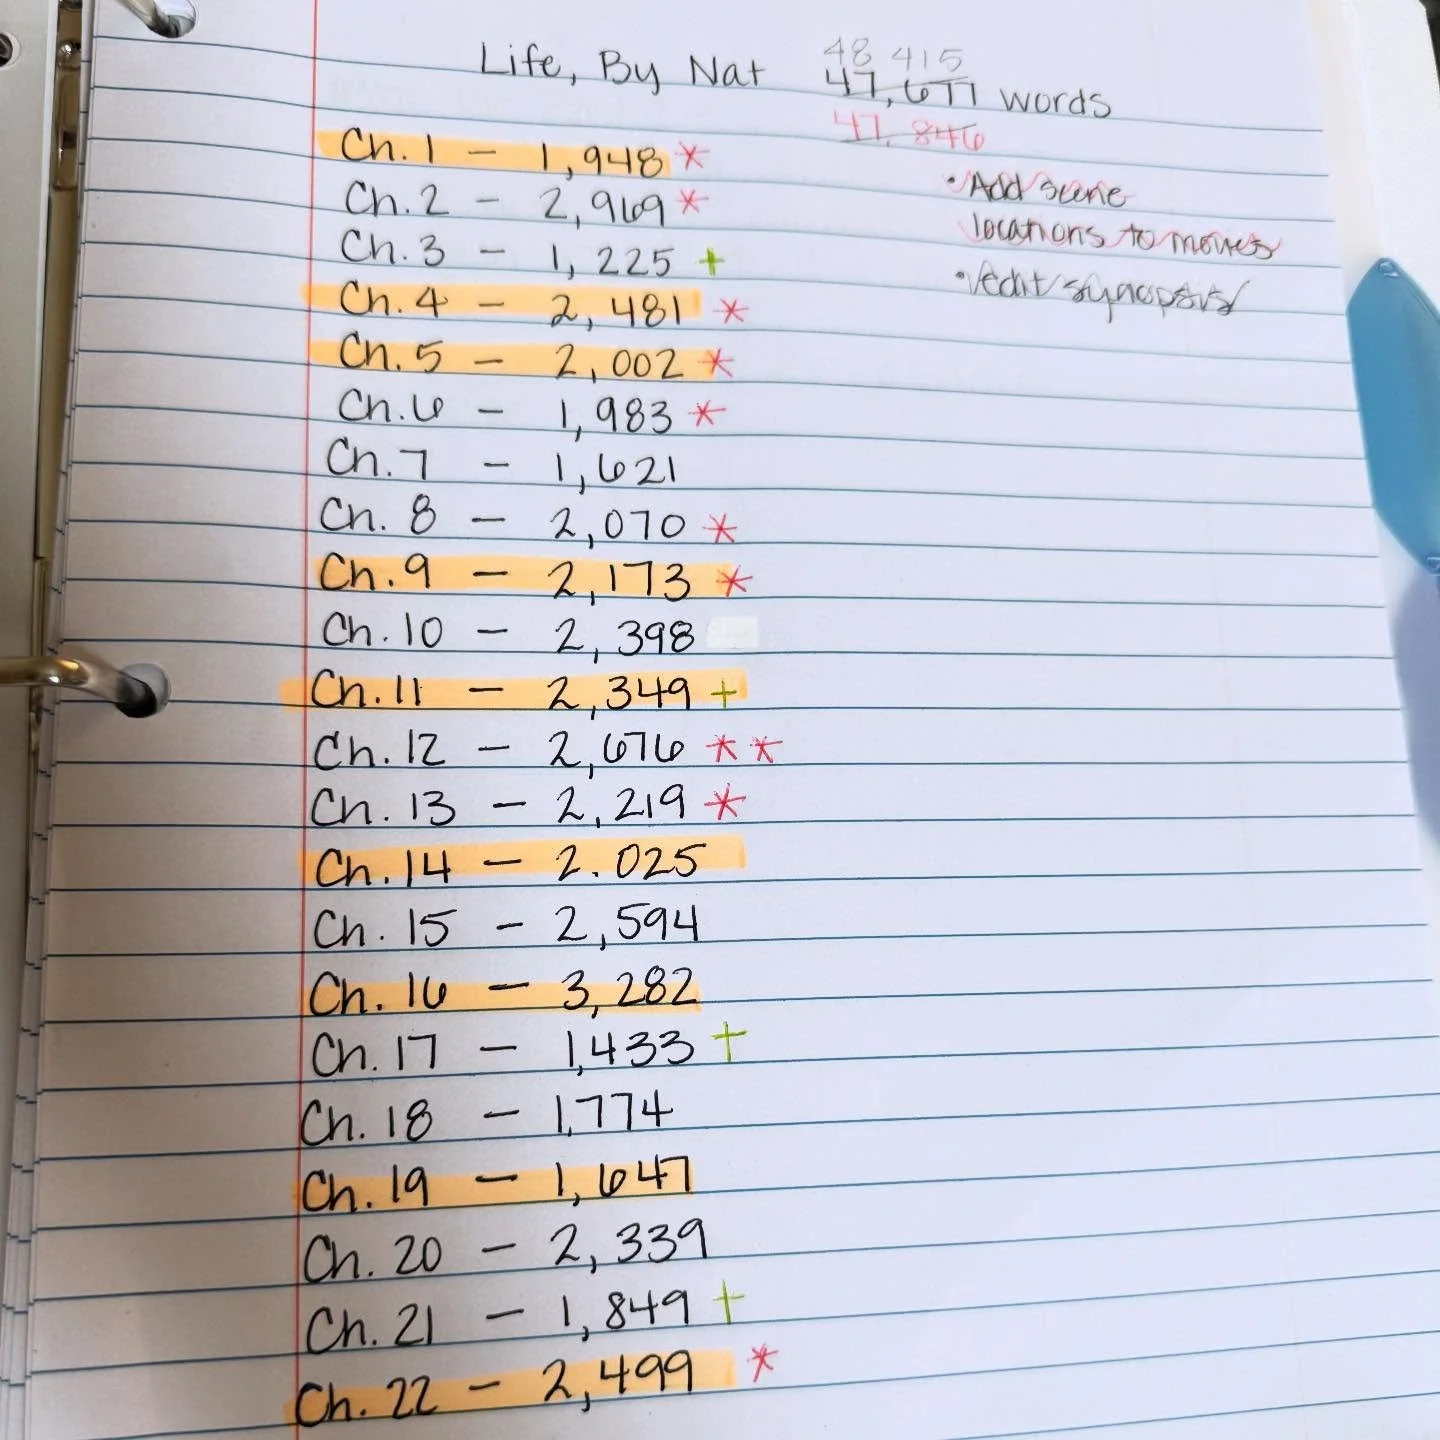 48 415
Life, By Nat 47,677 words
47,846
Ch. 1 - 1,948 *
• Add scene
Ch. 2 - 2,969 *
locations to movies
Ch. 3 - 1,225 +
• edit synopsis
Ch. 4 - 2,481 *
Ch. 5 - 2,002 *
Ch. 6 - 1,983 *
Ch. 7 - 1,621
Ch. 8 - 2,070 *
Ch. 9 - 2,173 *
Ch. 10 - 2,398
Ch. 11 - 2,349 +
Ch. 12 - 2,676 * *
Ch. 13 - 2,219 *
Ch. 14 - 2.025
Ch. 15 - 2,594
Ch. 16 - 3,282
Ch. 17 - 1,433 +
Ch. 18 - 1,774
Ch. 19 - 1,647
Ch. 20 - 2,339
Ch. 21 - 1,849 +
Ch. 22 - 2,499 *